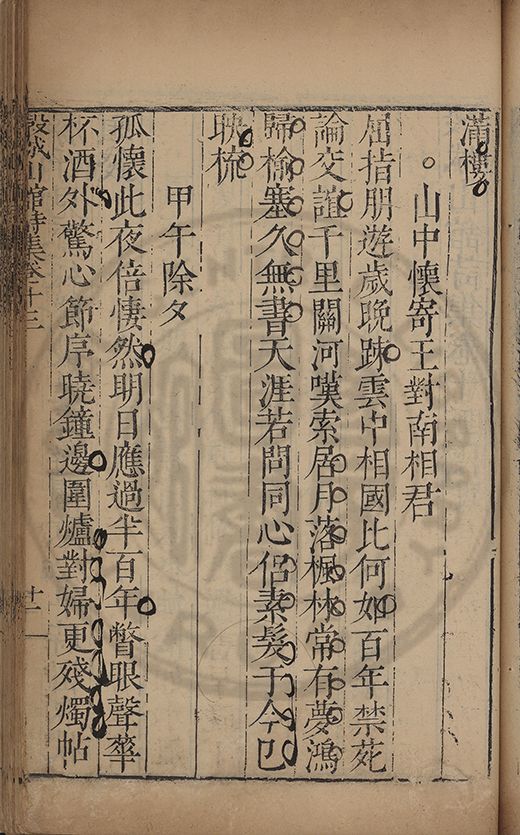 滿樓
山中懷寄王對南相君
屈指朋遊歲晚踈雲中相國比何如百年禁苑
論交誼千里關河嘆索居月落楓林常有夢鴻
歸榆塞久無書天涯若問同心侶素髮于今巳
耿梳
甲午除夕
孤懷此夜倍悽然明日應過半百年瞥眼聲華
杯酒外驚心節序曉鐘邊圍爐對婦更殘燭帖
榖城山館詩集卷十三
十二